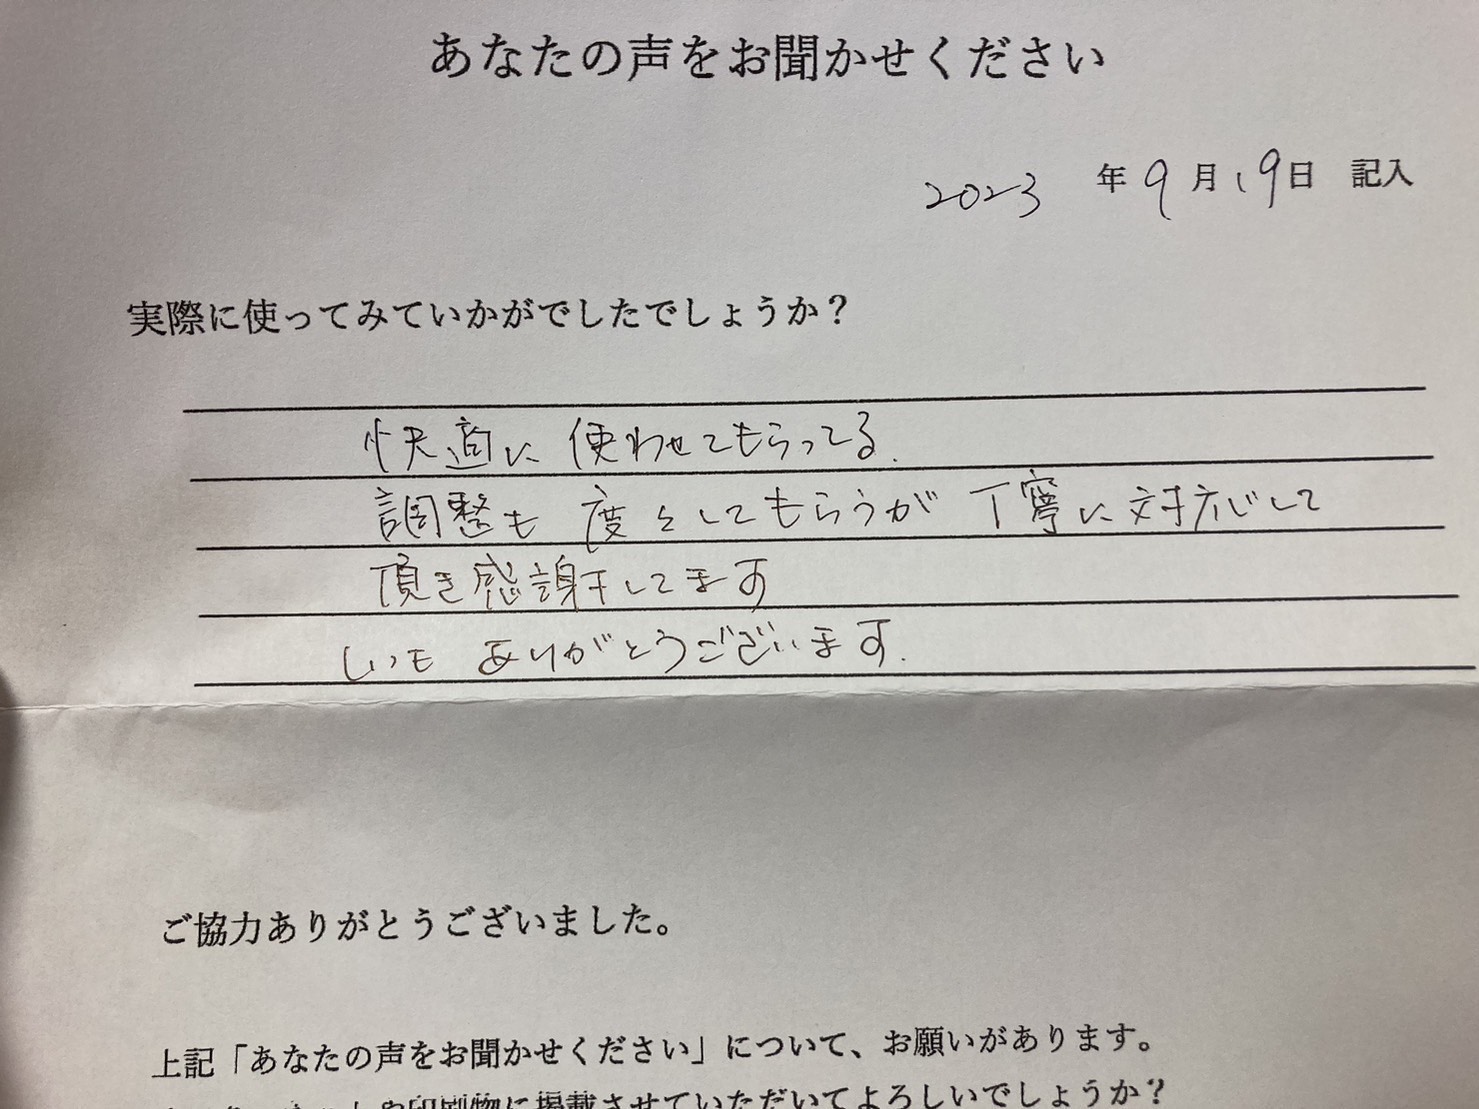 あなたの声をお聞かせください
2023 年 9 月 19日 記入
実際に使ってみていかがでしたでしょうか？
快適に 使わせてもらってる.
調整も 度々してもらうが 丁寧に対応して
頂き感謝してます
いつも ありがとうございます.
ご協力ありがとうございました。
上記「あなたの声をお聞かせください」について、お願いがあります。
や印刷物に掲載させていただいてよろしいでしょうか？